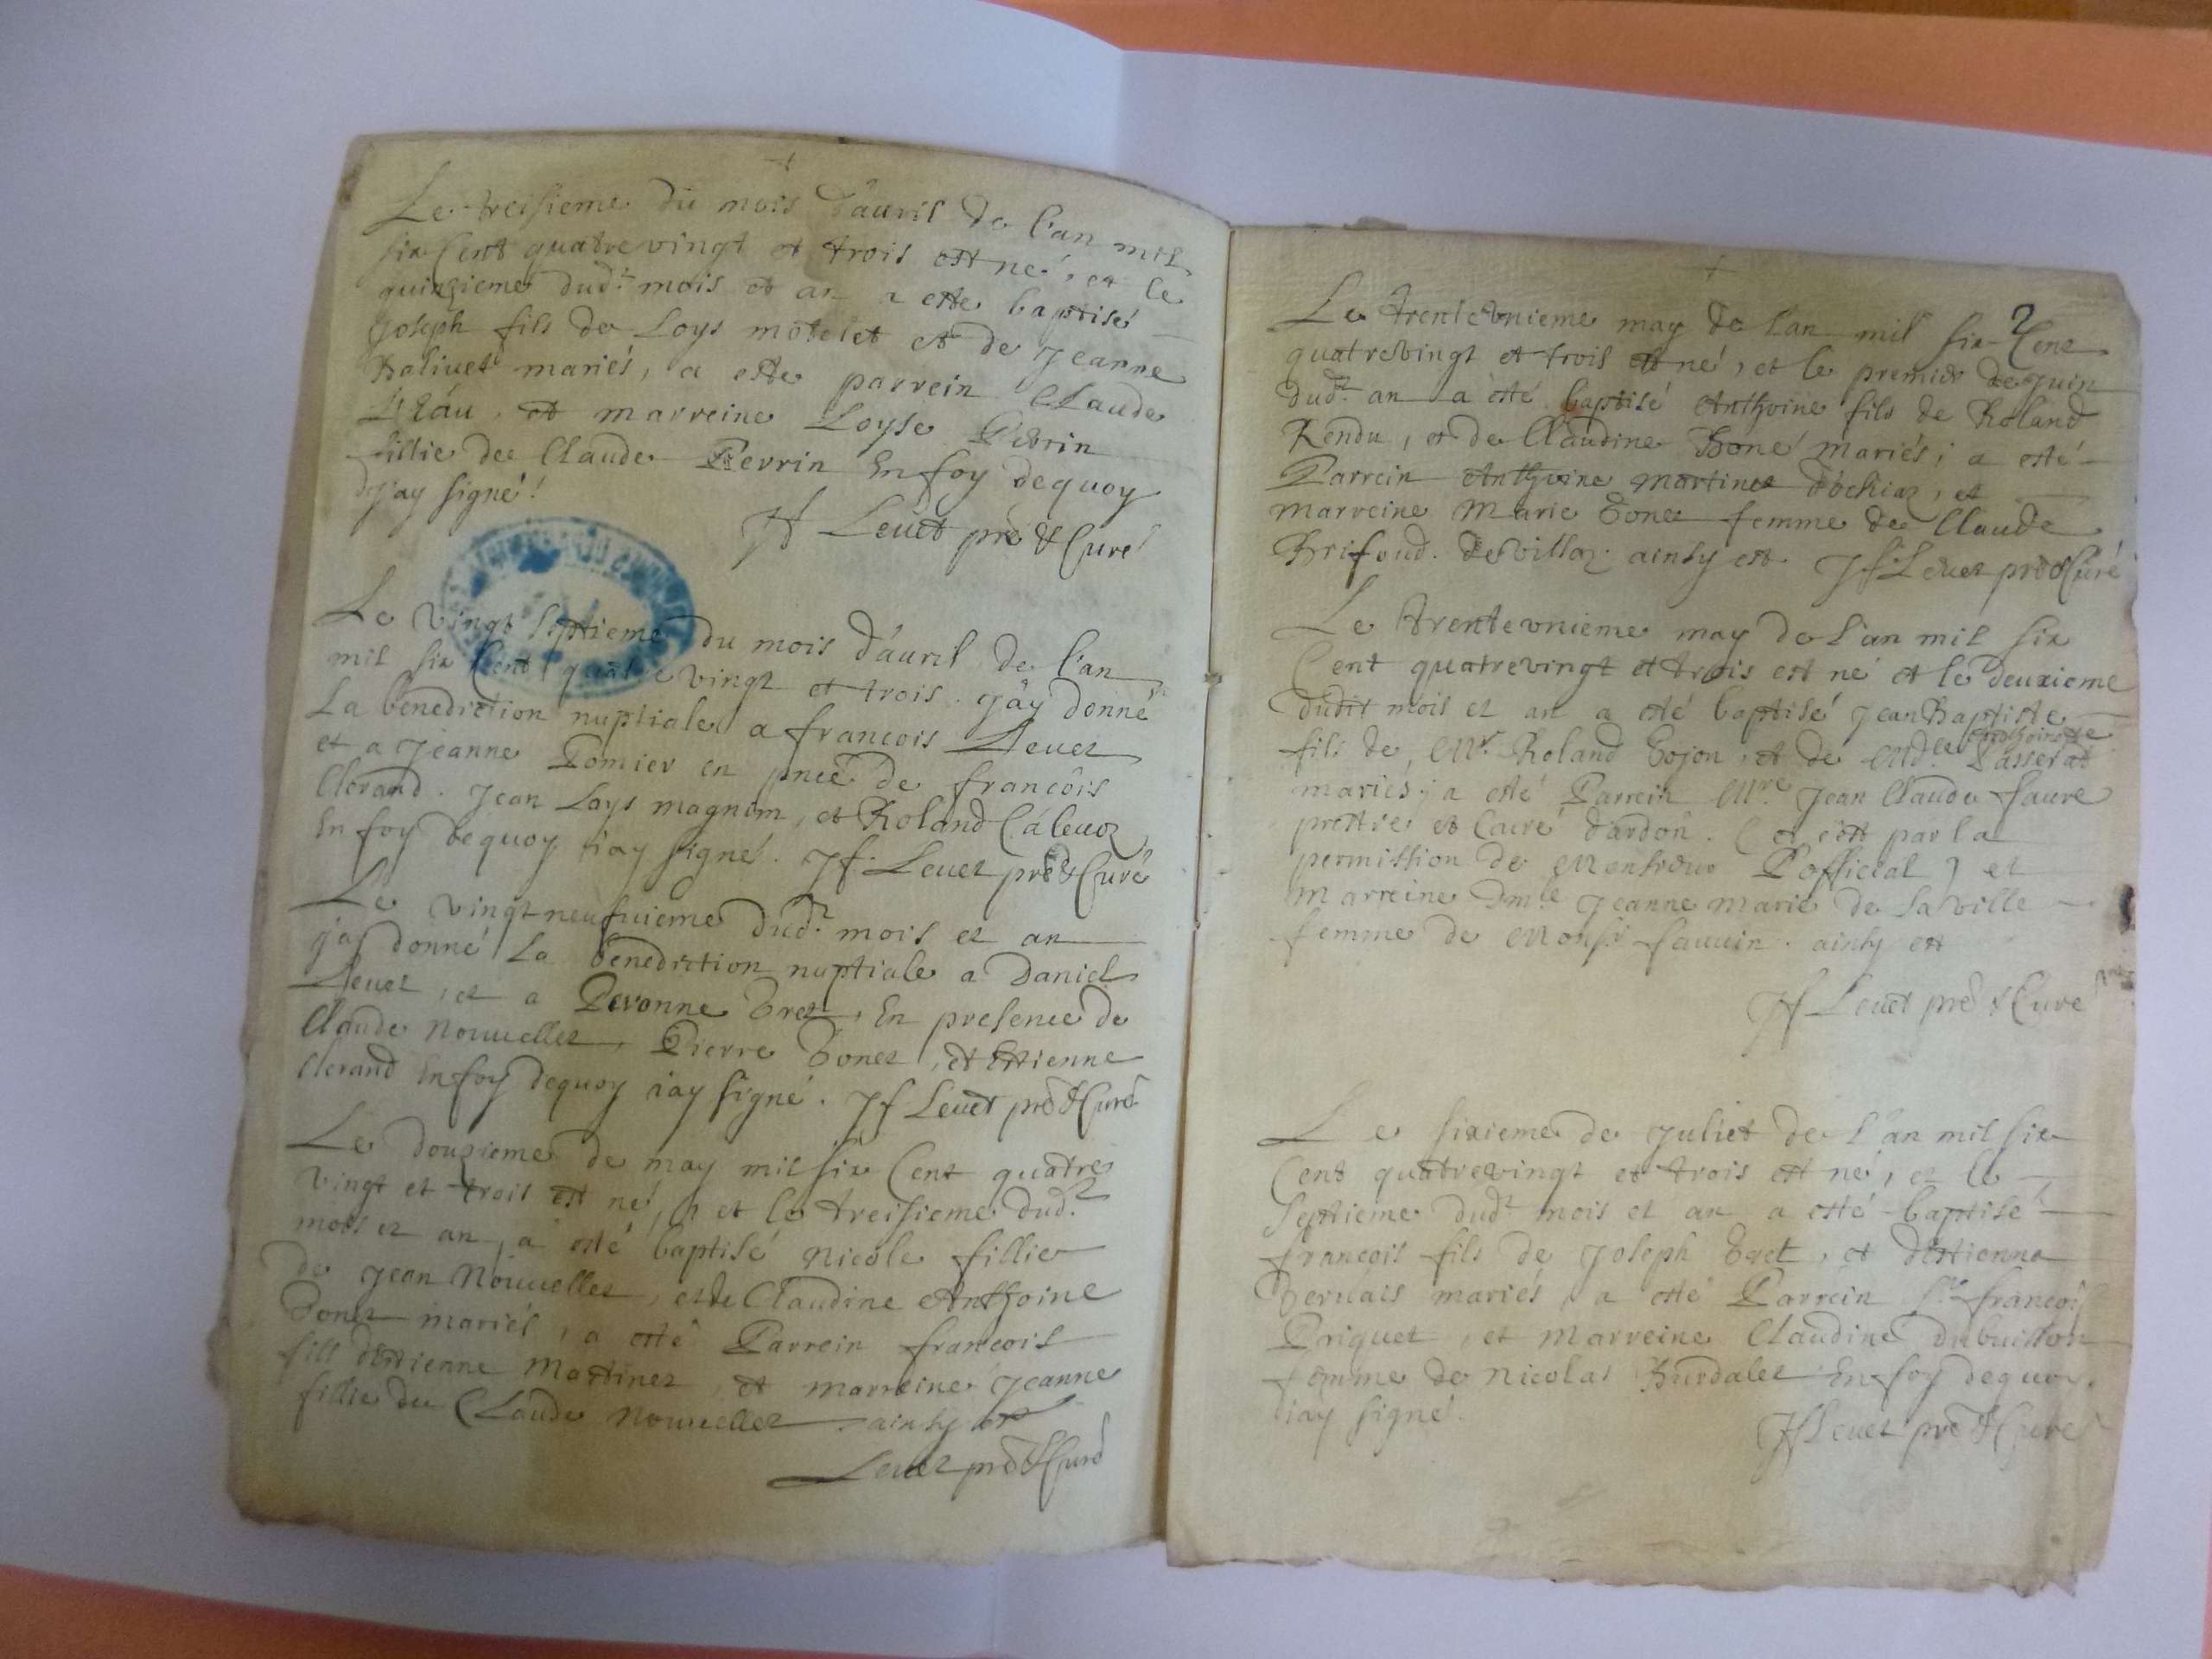 Le treisieme du mois d'auril de l'an mil
six Cent quatre vingt et trois est né, et le
quinzieme dud.t mois et an a este baptisé
Joseph fils de Loys motelet et de Jeanne
Balivet mariés, a este parrein Claude
et marreine Loyse Perrin
fillie de Claude Perrin En foy dequoy
j'ay signé
Jf Levet pre & Curé
Le vingt septieme du mois d'auril de l'an
mil six Cent quatre vingt et trois j'ay donné
La benediction nuptiale a francois Levet
et a Jeanne Pomier en pnce de francois
Clerand. Jean Loys magnin, et Roland
En foy dequoy i'ay signé. Jf. Levet pre & Curé
Le vingtneufuieme dud.t mois et an
j'ay donné La benediction nuptiale a Daniel
Levet, et a Peronne Bret, En presence de
Claude Nouuellet, Pierre Bonet, et Estienne
Clerand En foy dequoy i'ay signé. Jf Levet pre & Curé
Le douzieme de may mil six Cent quatre
vingt et trois est né, et le treisieme dud.t
mois et an, a esté baptisé Nicole fillie
de Jean Nouuellet, et de Claudine Anthoine
Bonet mariés, a esté Parrein francois
fils d'Estienne Martinet, et marreine Jeanne
fillie de Claude Nouuellet. ainsy est
Levet pre & Curé
2
Le trentevnieme may de l'an mil six Cent
quatrevingt et trois est né, et le premier de Juin
dud.t an a esté baptisé Anthoine fils de Roland
Rendu, et de Claudine Boné mariés; a esté
Parrein Anthoine Martinet d'ochiaz, et
marreine Marie Bonet femme de Claude
Brifoud. de villaz. ainsy est. Jf. Levet pre & Curé
Le trentevnieme may de l'an mil six
Cent quatrevingt et trois est né et le deuxieme
dudit mois et an a esté baptisé Jean Baptiste
fils de Mr. Roland Bojon, et de Md.le Passerat
mariés; a esté Parrein Mre Jean Claude Faure
prestre et Curé d'ardon. (et c'est par la
permission de Monsieur l'official) et
Marreine Dm.le Jeanne Marie de Laville
femme de Monsr fauuin. ainsy est
Jf Levet pre & Curé
Le sixieme de Juliet de l'an mil six
Cent quatrevingt et trois est né, et le
Septieme dud.t mois et an a esté baptisé
francois fils de Joseph Bret, et d'Estienna
Beruais mariés, a esté Parrein Sr. francois
Priquet, et Marreine Claudine Dubuisson
femme de Nicolas Burdalet En foy dequoy
i'ay signé.
Jf Levet pre & Curé